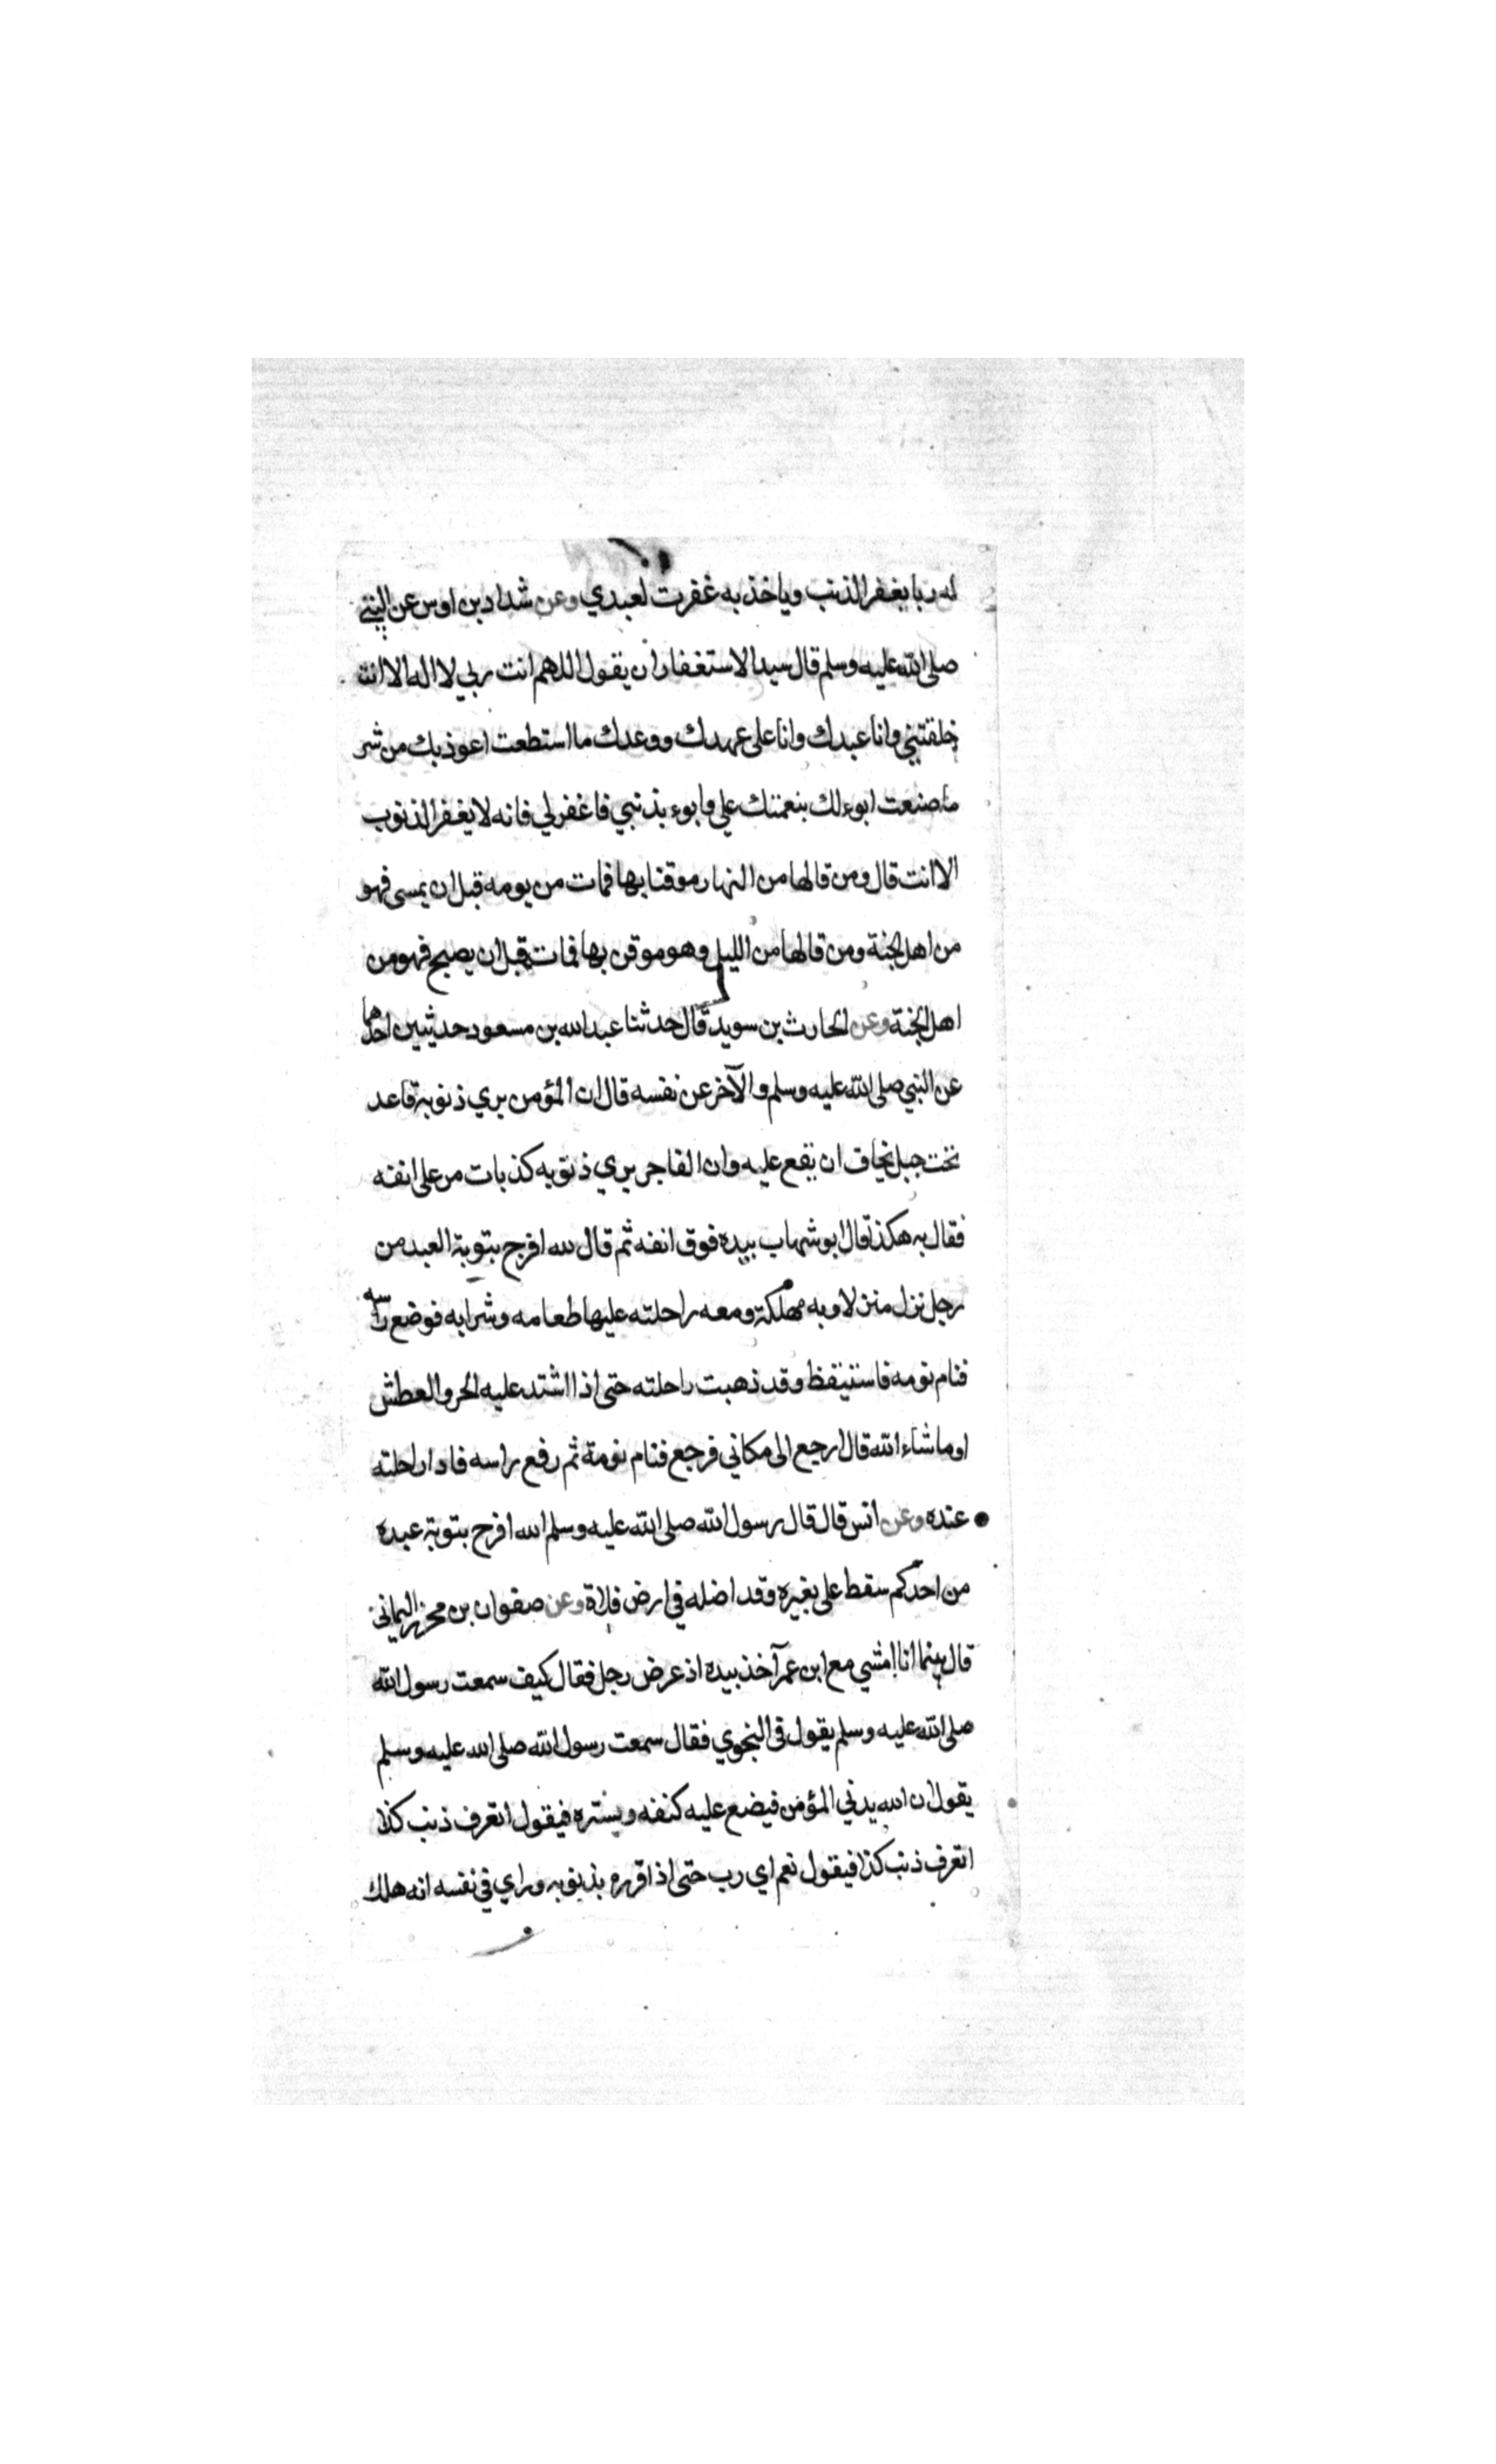 له ربا يغفر الذنب وياخذ به غفرت لعبدي وعن شداد بن اوس عن النبي
صلى الله عليه وسلم قال سيد الاستغفار ان يقول اللهم انت ربي لا اله الا انت
خلقتني وانا عبدك وانا على عهدك ووعدك ما استطعت اعوذ بك من شر
ما صنعت ابوء لك بنعمتك علي وابوء بذنبي فاغفر لي فانه لا يغفر الذنوب
الا انت قال ومن قالها من النهار موقنا بها فمات من يومه قبل ان يمسى فهو
من اهل الجنة ومن قالها من الليل وهو موقن بها فمات قبل ان يصبح فهو من
اهل الجنة وعن الحارث بن سويد قال حدثنا عبد الله بن مسعود حديثين احدهما
عن النبي صلى الله عليه وسلم والآخر عن نفسه قال ان المؤمن يري ذنوبه قاعد
تحت جبل يخاف ان يقع عليه وان الفاجر يري ذنوبه كذبات مر على انفه
فقال به هكذا قال ابو شهاب بيده فوق انفه ثم قال لله افرح بتوبة العبد من
رجل نزل منزلا وبه مهلكة ومعه راحلته عليها طعامه وشرابه فوضع راسه
فنام نومه فاستيقظ وقد ذهبت راحلته حتى اذا اشتد عليه الحر والعطش
او ما شاء الله قال ارجع الى مكاني فرجع فنام نومة ثم رفع راسه فاذا راحلته
عنده وعن انس قال قال رسول الله صلى الله عليه وسلم الله افرح بتوبة عبده
من احدكم سقط على بعيره وقد اضله في ارض فلاة وعن صفوان بن محرز اليماني
قال بينما انا امشي مع ابن عمر آخذ بيده اذ عرض رجل فقال كيف سمعت رسول الله
صلى الله عليه وسلم يقول في النجوي فقال سمعت رسول الله صلى الله عليه وسلم
يقول ان الله يدني المؤمن فيضع عليه كنفه ويستره فيقول اتعرف ذنب كذا
اتعرف ذنب كذا فيقول نعم اي رب حتى اذا قرره بذنوبه وراي في نفسه انه هلك